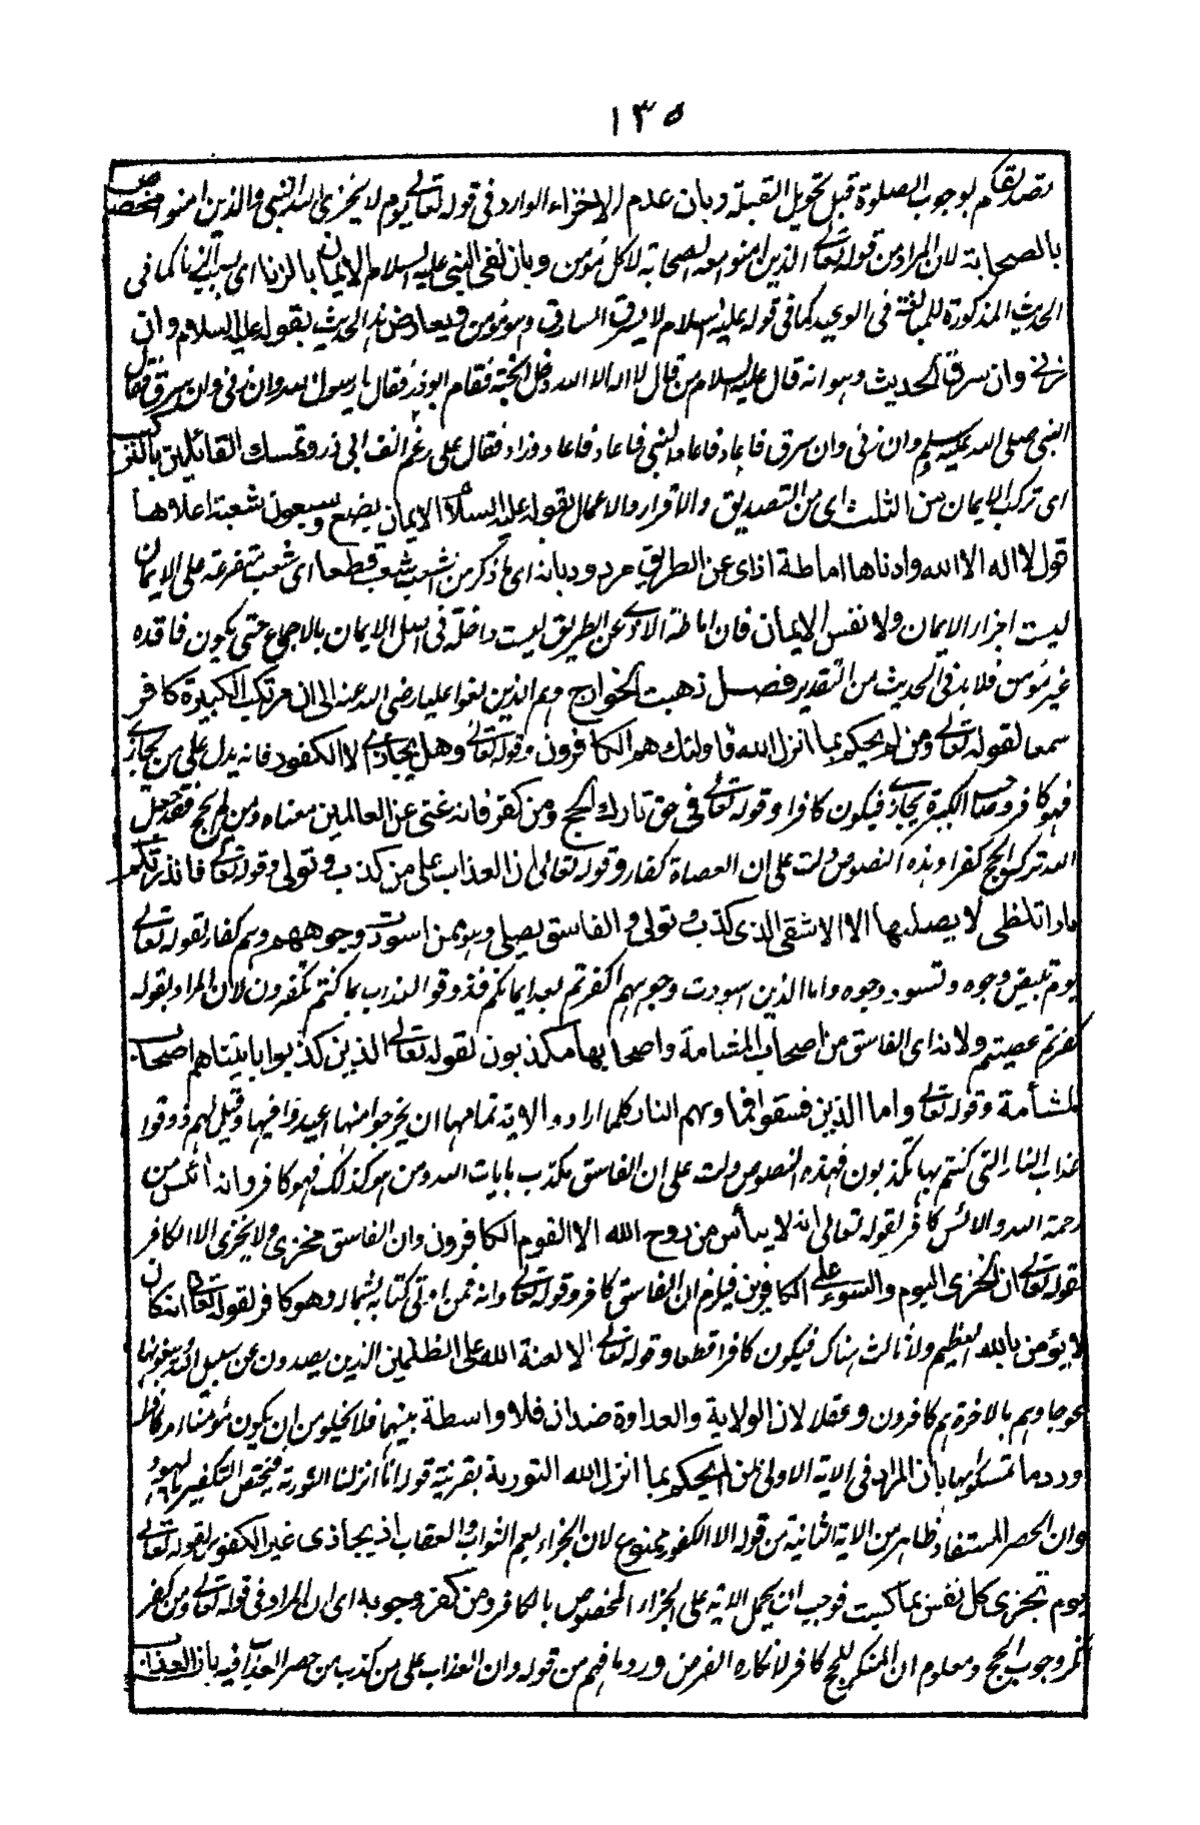 ١٣٥
تصديقكم بوجوب الصلوة قبل تحويل القبلة وبان عدم الاخزاء الوارد فى قوله تعالى يوم لا يخزى الله النبى والذين امنوا مختص
بالصحابة لان المراد من قوله تعالى الذين امنوا معه الصحابة لا كل مؤمن وبان نفى النبى عليه السلام الايمان بالزنا اى بسبب الزنا كما فى
الحديث المذكورة للمبالغة فى الوعيد كما فى قوله عليه السلام لا يسرق السارق وهو مؤمن ويعارض هذا الحديث بقوله عليه السلام وان
زنى وان سرق الحديث وهو انه قال عليه السلام من قال لا اله الا الله دخل الجنة فقام ابو ذر فقال يا رسول الله وان زنى وان سرق فقال
النبى صلى الله عليه وسلم وان زنى وان سرق فاعاد فاعاد النبى فاعاد فاعاد وزاد فقال على رغم انف ابى ذر وتمسك القائلين بالتركيب
اى تركب الايمان من الثلث اى من التصديق والاقرار والاعمال لقوله عليه السلام الايمان بضع وسبعون شعبة اعلاها
قول لا اله الا الله وادناها اماطة اذاى عن الطريق مردود بانه اى ما ذكر من الشعب شعب قطعا اى شعب متفرعة على الايمان
ليست اجزاء الايمان ولا نفس الايمان فان اماطة الاذى عن الطريق ليست داخلة فى اصل الايمان بالاجماع حتى يكون فاقده
غير مؤمن فلا بد فى الحديث من التقدير فصل ذهبت الخوارج وهم الذين بغوا عليا رضى الله عنه الى ان مرتكب الكبيرة كافر
سمعا لقوله تعالى ومن لم يحكم بما انزل الله فاولئك هم الكافرون وقوله تعالى وهل يجازى الا الكفور فانه يدل على من يجازى
فهو كافر وصاحب الكبيرة يجازى فيكون كافرا وقوله تعالى فى حق تارك الحج ومن كفر فانه غنى عن العالمين معناه ومن لم يحج فقد جعل
الله ترك الحج كفرا وهذه النصوص دلت على ان العصاة كفار وقوله تعالى ان العذاب على من كذب وتولى وقوله تعالى فانذرتكم
نارا تلظى لا يصلىها الا الاشقى الذى كذب وتولى والفاسق يصلى وهو ممن اسودت وجوههم وهم كفار لقوله تعالى
يوم تبيض وجوه وتسود وجوه واما الذين اسودت وجوههم اكفرتم بعد ايمانكم فذوقوا العذاب بما كنتم تكفرون لان المراد بقوله
كفرتم عصيتم ولانه اى الفاسق من اصحاب المشامة واصحابها مكذبون لقوله تعالى الذين كذبوا باياتنا هم اصحاب
المشأمة وقوله تعالى واما الذين فسقوا فماويهم النار كلما ارادوا الاية تمامها ان يخرجوا منها اعيدوا فيها وقيل لهم ذوقوا
عذاب النار التى كنتم بها تكذبون فهذه النصوص دلت على ان الفاسق مكذب بايات الله ومن هو كذلك فهو كافر وانه ائس من
رحمة الله والائس كافر لقوله تعالى انه لا ييأس من روح الله الا القوم الكافرون وان الفاسق مخزى ولا يخزى الا الكافر
لقوله تعالى ان الخزى اليوم والسوء على الكافرين فيلزم ان الفاسق كافر وقوله تعالى وانه فمن اوتى كتابه بشماله وهو كافر لقوله تعالى انه كان
لا يؤمن بالله العظيم ولا ثالث هناك فيكون كافرا قطعا وقوله تعالى الا لعنة الله على الظلمين الذين يصدون عن سبيل الله ويبغونها
عوجا وهم بالاخرة هم كافرون وعقلا لان الولاية والعداوة ضدان فلا واسطة بينهما فلا يخلو من ان يكون مؤمنا او كافرا
ورد ما تمسكوا بها بان المراد فى الاية الاولى من لم يحكم بما انزل الله التورية بقرينة قوله انا انزلنا التورية فيختص التكفير باليهود
وان الحصر المستفاد ظاهر من الاية الثانية من قوله الا الكفور ممنوع لان الجزاء يعم الثواب والعقاب اذ يجازى غير الكفور لقوله تعالى
يوم تجزى كل نفس بما كسبت فوجب ان يحمل الاية على الجزاء المخصوص بالكافر ومن كفر وجوبه اى ان المراد فى قوله تعالى ومن كفر
كفر وجوب الحج ومعلوم ان المنكر للحج كافر لانكاره الفرض ورد ما فهم من قوله وان العذاب على من كذب من حصر العذاب فيه بان العذاب